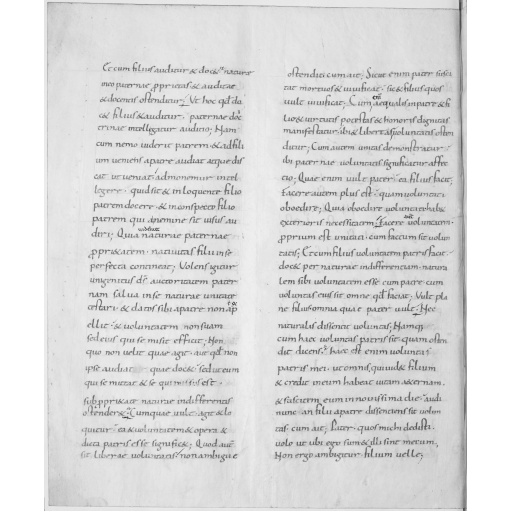 Et cum filius auditur & doc& naturae
meo paternae proprietas & auditae
& docentis ostenditur; Ut hoc qd do
c& filius & auditur paternae doc
trinae intellegatur auditio; Nam
cum nemo uiderit patrem & ad fili
um ueniens a patre audiat atque dis
cat ut ueniat admonemur intel
legere quid sit & in loquente filio
patrem docere & in conspecto filio
patrem qui a nemine sit uisus au
diri; Quia naturae paternae
proprietatem natiuitas filii in se
perfecta contineat; Volens igitur
unigenitus di auctoritatem pater
nam salua in se naturae unitate
testari & datos sibi a patre non
ellit & uoluntatem non suam
sed eius qui se misit efficit; Non
quo non uelit quae agit aut qd non
ipse audiat quae doc& sed ut eum
qui se mittat & se qui missus est
sub proprietate naturae indifferentis
ostender& cumque uult agit & lo
quitur ea & uoluntatem & opera &
dicta patris esse signific&; Quod autē
sit liberae uoluntatis non ambigue
ostendit cum ait; Sicut enim pater susci
tat mortuos & uiuificat sic & filius quos
uult uiuificat; Cum aequalis in patre & fi
lio & uirtutis potestas & honoris dignitas
manifestatur ibi & libertas uoluntatis osten
ditur; Cum autem unitas demonstratur
ibi paternae uoluntatis significatur affec
tio; Quae enim uult pater ea filius facit;
Facere autem plus est quam uoluntati
oboedire; Quia oboedire uoluntati hab&
exterioris necessitatem; Facere uoluntatem
proprium est unitati cum factum sit uolun
tatis; Et cum filius uoluntatem patris facit
doc& per naturae indifferentiam natura
lem sibi uoluntatem esse cum patre cum
uoluntas eius sit omne qd faciat; Vult pla
ne filius omnia quae pater uult; Nec
naturalis dissentit uoluntas; Namq
cum haec uoluntas patris sit quam osten
dit dicens haec est enim uoluntas
patris mei ut omnis qui uid& filium
& credit in eum habeat uitam aeternam
& suscitem eum in nouissima die audi
nunc an filii a patre dissentiens sit uolun
tas cum ait; Pater quos mihi dedisti
uolo ut ubi ego sum & illi sint mecum;
Non ergo ambigitur filium uelle;